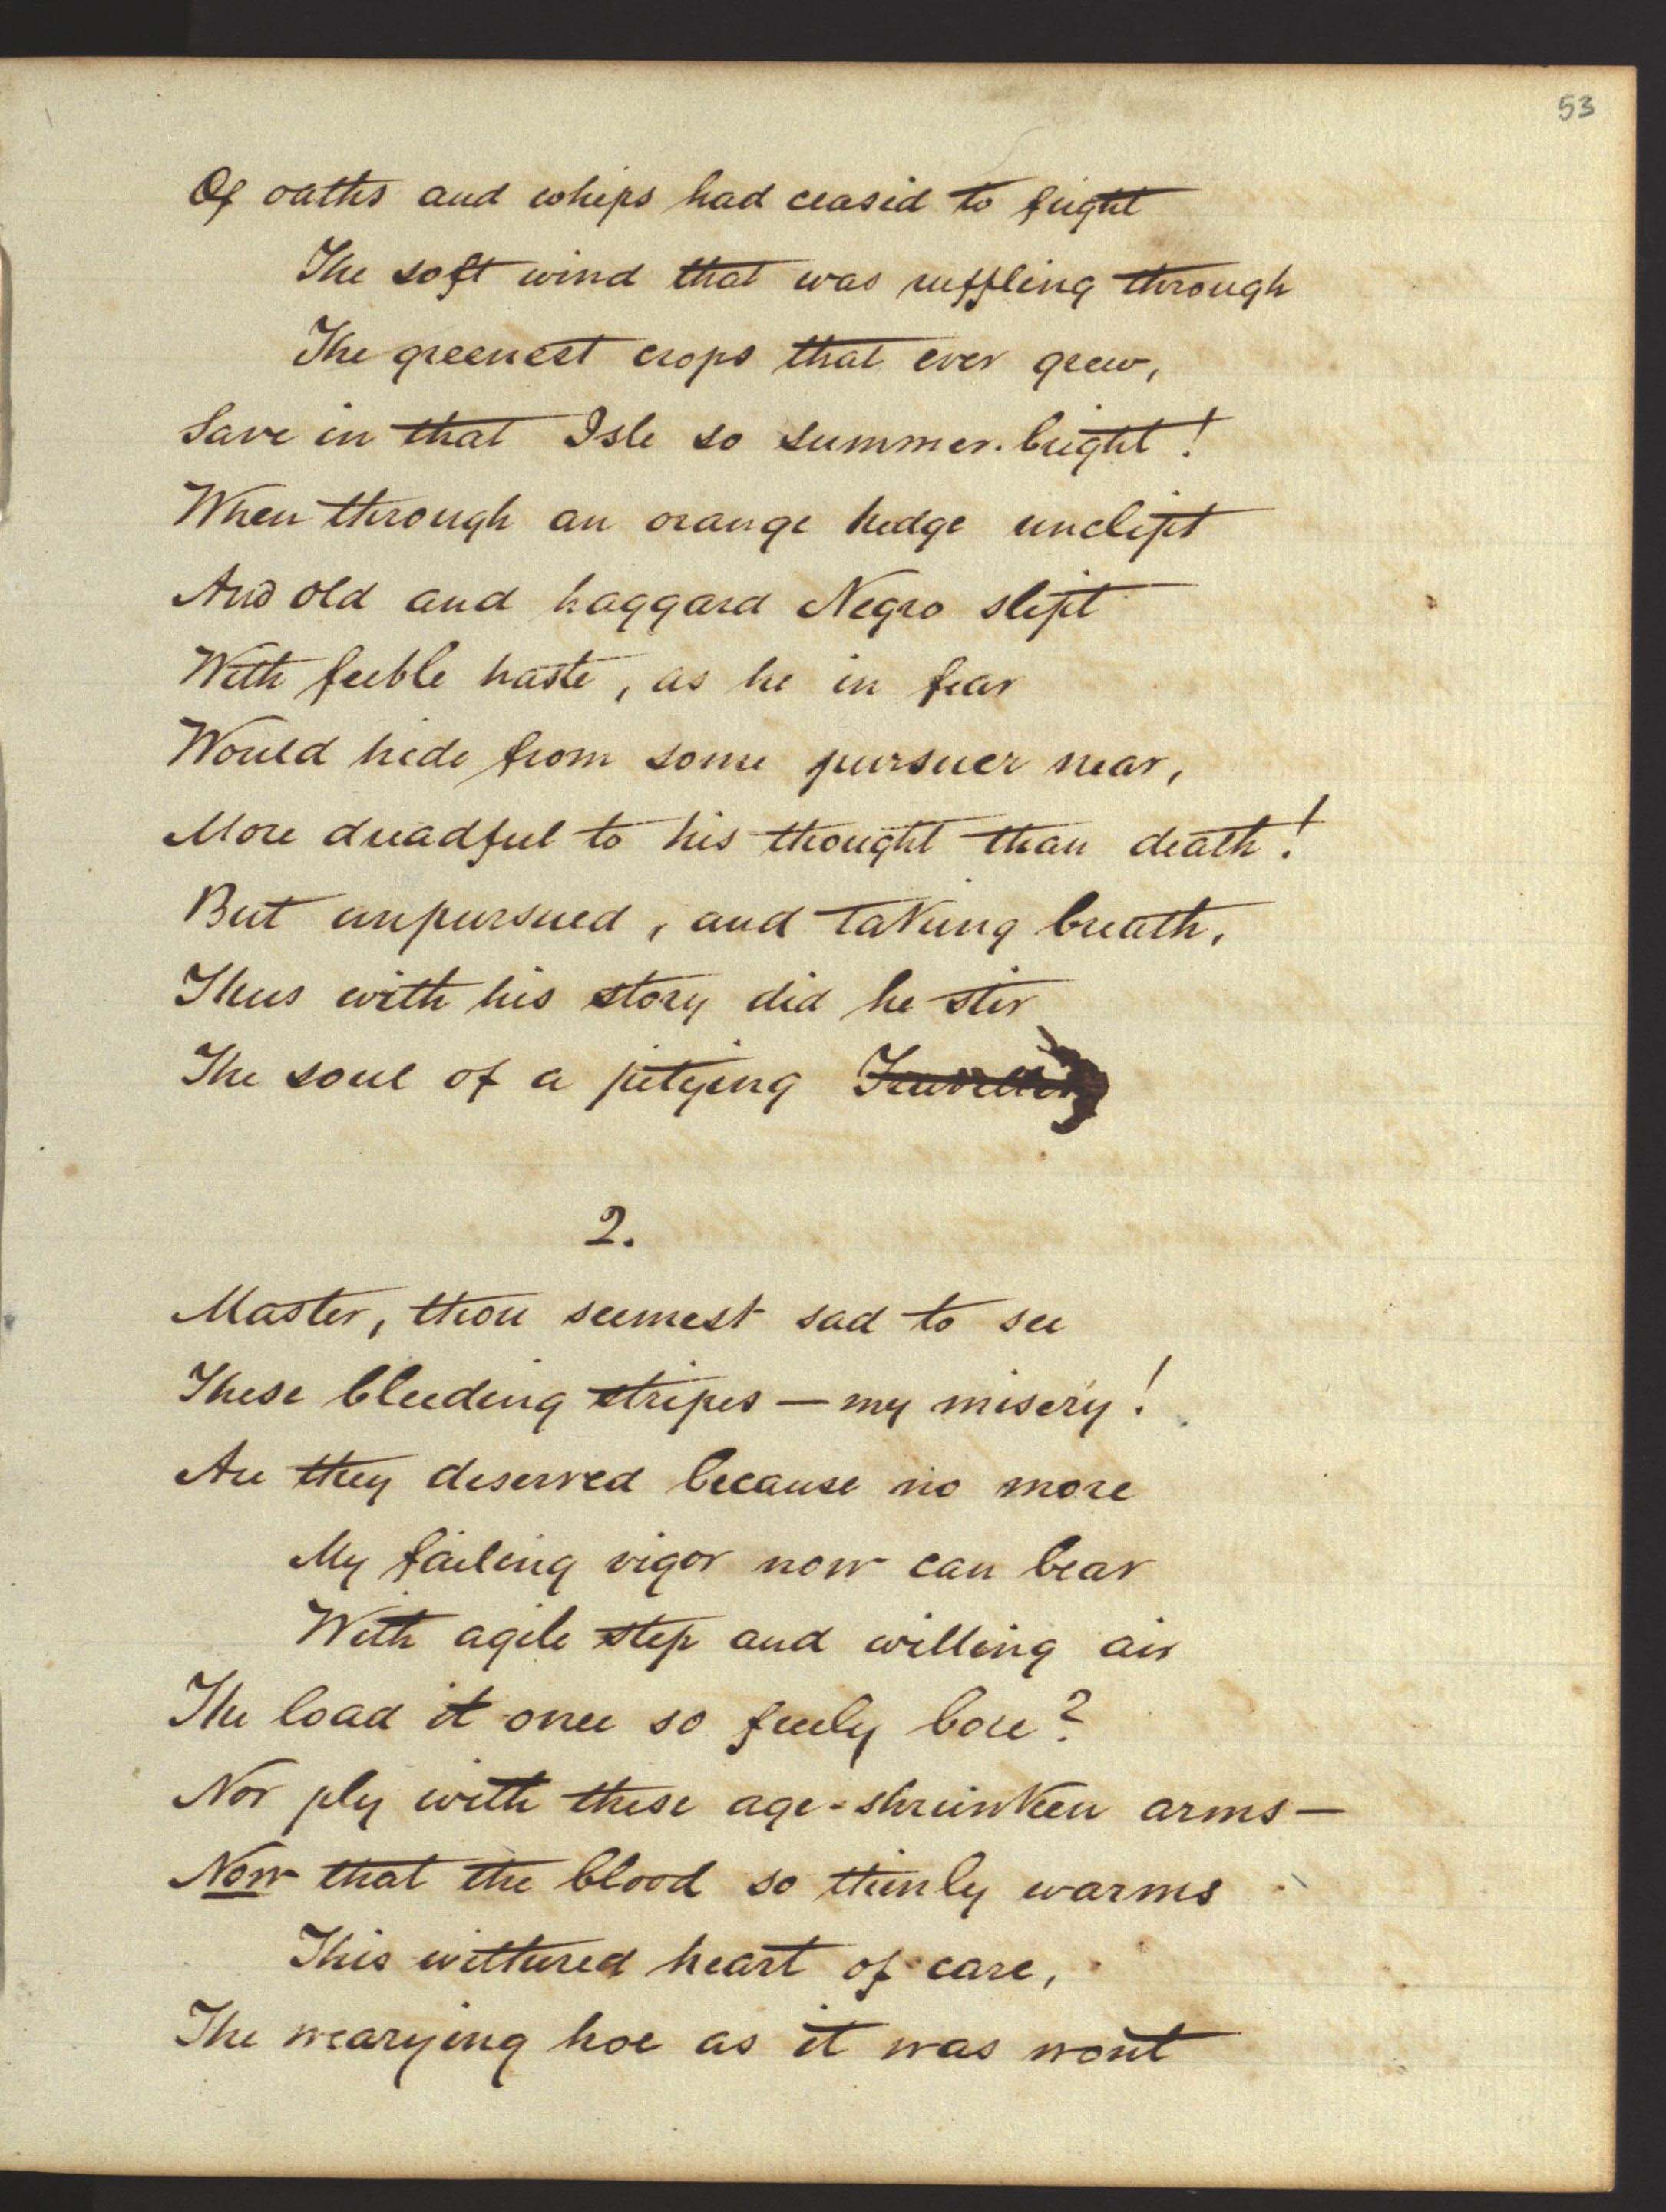 53
Of oaths and whips had ceased to fright
The soft wind that was ruffling through
The greenest crops that ever grew,
Save in that Isle so summer-bright!
When through an orange hedge unclipt
And old and haggard Negro slipt
With feeble haste, as he in fear
Would hide from some pursuer near,
More dreadful to his thought than death!
But unpursued, and taking breath,
Thus with his story did he stir
The soul of a pitying Traveller
2.
Master, thou seemest sad to see
These bleeding stripes — my misery!
Are they deserved because no more
My failing vigor now can bear
With agile step and willing air
The load it once so freely bore?
Nor ply with these age-shrunken arms —
Now that the blood so thinly warms
This withered heart of care,
The wearying hoe as it was wont